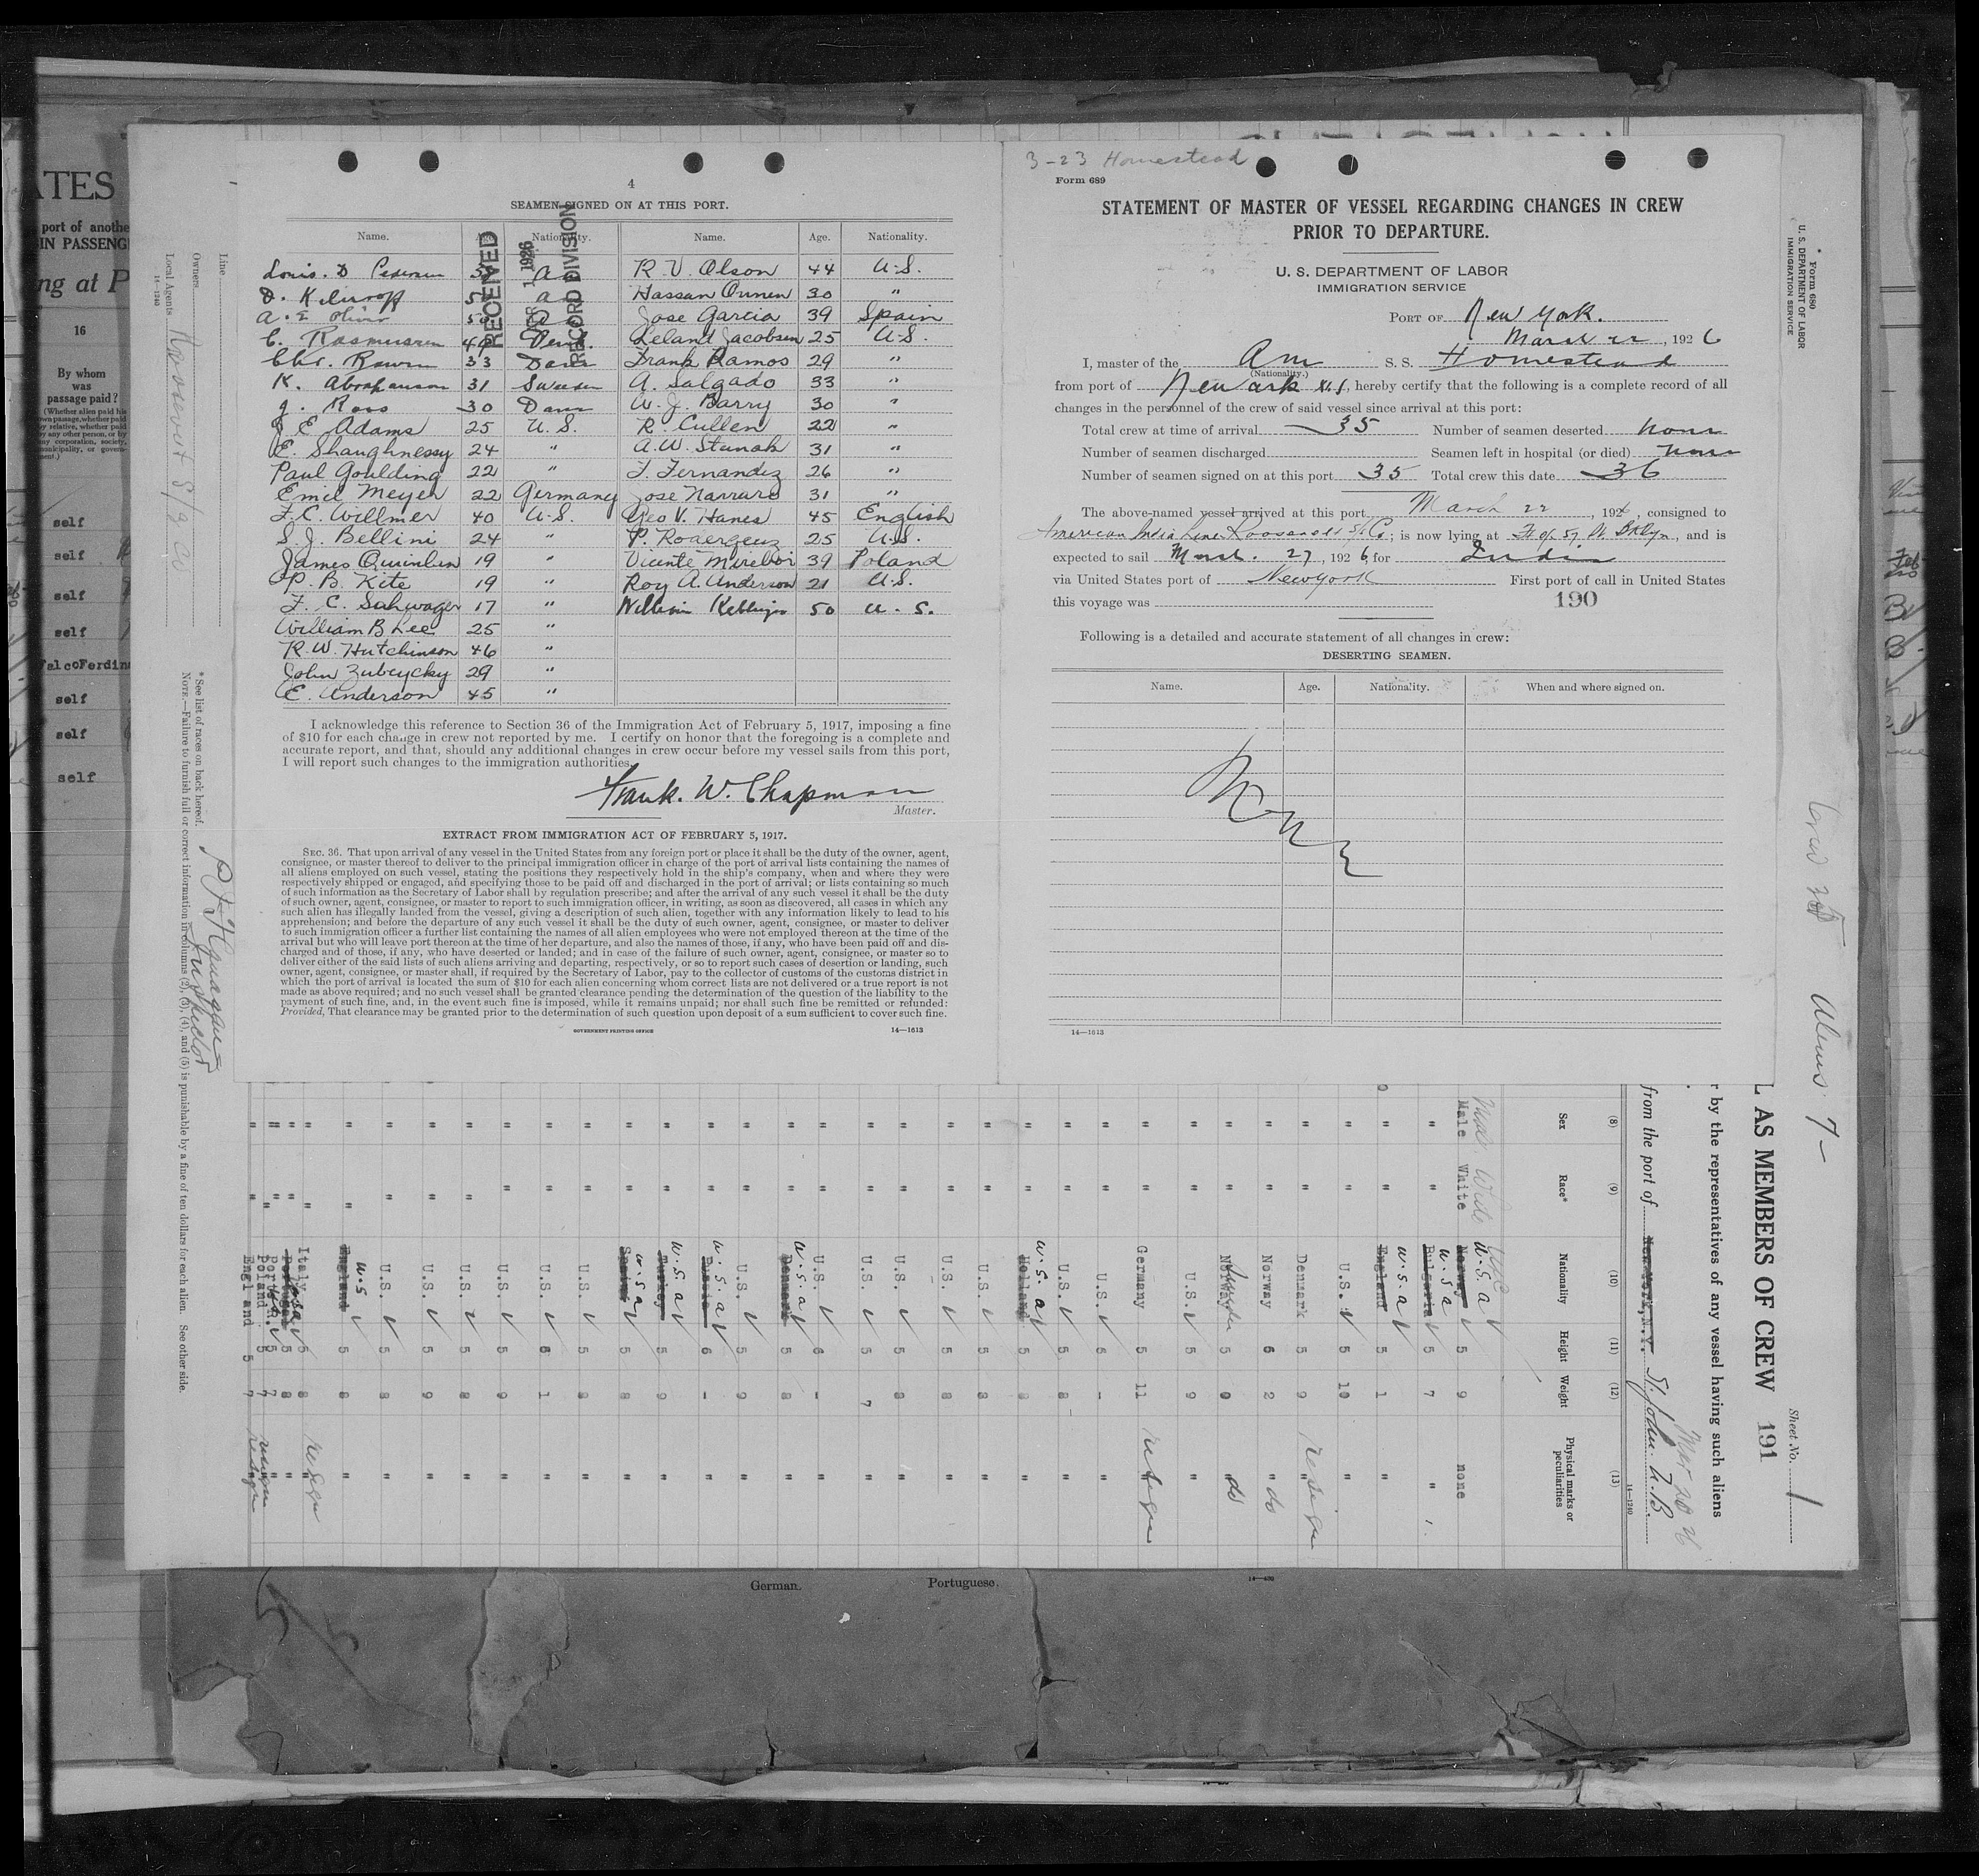 4
SEAMEN SIGNED ON AT THIS PORT.
Name. Age. Nationality. Name. Age. Nationality.
RECEIVED
1926
RECORD DIVISION
Louis. D Pedersen
R. V. Olson 44 U.S.
Hassan 30 "
Jose Garcia 39 Spain
C. Rasmussen
Leland Jacobsen 25 U.S.
Chr. 33
Frank Ramos 29 "
K. Abrahamson 31 Sweden
A. Salgado 33 "
J. Ross 30
W. J. Barry 30 "
J E Adams 25 U.S.
R. Cullen 22 "
E. Shaughnessy 24 "
A. W. 31 "
Paul Goulding 22 "
F. Fernandez 26 "
Emil Meyer 22 Germany
Jose Narraro 31 "
F. C. Willmer 40 U.S.
Geo V. Hanes 45 English
S. J. Bellini 24 "
P. 25 U.S.
James Quinlan 19 "
Vicente 39 Poland
P. B. Kite 19 "
Roy A. Anderson 21 U.S.
F. C. Schwager 17 "
William 50 U.S.
William B Lee 25 "
R. W. Hutchinson 46 "
John Zubeycky 29 "
E. Anderson 45 "
I acknowledge this reference to Section 36 of the Immigration Act of February 5, 1917, imposing a fine
of $10 for each change in crew not reported by me. I certify on honor that the foregoing is a complete and
accurate report, and that, should any additional changes in crew occur before my vessel sails from this port,
I will report such changes to the immigration authorities.
Frank. W. Chapman
Master.
EXTRACT FROM IMMIGRATION ACT OF FEBRUARY 5, 1917.
SEC. 36. That upon arrival of any vessel in the United States from any foreign port or place it shall be the duty of the owner, agent,
consignee, or master thereof to deliver to the principal immigration officer in charge of the port of arrival lists containing the names of
all aliens employed on such vessel, stating the positions they respectively hold in the ship's company, when and where they were
respectively shipped or engaged, and specifying those to be paid off and discharged in the port of arrival; or lists containing so much
of such information as the Secretary of Labor shall by regulation prescribe; and after the arrival of any such vessel it shall be the duty
of such owner, agent, consignee, or master to report to such immigration officer, in writing, as soon as discovered, all cases in which any
such alien has illegally landed from the vessel, giving a description of such alien, together with any information likely to lead to his
apprehension; and before the departure of any such vessel it shall be the duty of such owner, agent, consignee, or master to deliver
to such immigration officer a further list containing the names of all alien employees who were not employed thereon at the time of the
arrival but who will leave port thereon at the time of her departure, and also the names of those, if any, who have been paid off and dis-
charged and of those, if any, who have deserted or landed; and in case of the failure of such owner, agent, consignee, or master so to
deliver either of the said lists of such aliens arriving and departing, respectively, or so to report such cases of desertion or landing, such
owner, agent, consignee, or master shall, if required by the Secretary of Labor, pay to the collector of customs of the customs district in
which the port of arrival is located the sum of $10 for each alien concerning whom correct lists are not delivered or a true report is not
made as above required; and no such vessel shall be granted clearance pending the determination of the question of the liability to the
payment of such fine, and, in the event such fine is imposed, while it remains unpaid; nor shall such fine be remitted or refunded:
Provided, That clearance may be granted prior to the determination of such question upon deposit of a sum sufficient to cover such fine.
GOVERNMENT PRINTING OFFICE 14—1613
3-23 Homestead
Form 689
STATEMENT OF MASTER OF VESSEL REGARDING CHANGES IN CREW
PRIOR TO DEPARTURE.
U. S. DEPARTMENT OF LABOR
IMMIGRATION SERVICE
PORT OF New York.
March 22, 1926
I, master of the Am S. S. Homestead
(Nationality.)
from port of Newark N.J, hereby certify that the following is a complete record of all
changes in the personnel of the crew of said vessel since arrival at this port:
Total crew at time of arrival 35 Number of seamen deserted none
Number of seamen discharged Seamen left in hospital (or died) none
Number of seamen signed on at this port 35 Total crew this date 36
The above-named vessel arrived at this port March 22, 192, consigned to
American India Line Roosevelt S/S Co; is now lying at Ft of 57 St Bklyn, and is
expected to sail March. 27, 1926, for India
via United States port of New York First port of call in United States
this voyage was
190
Following is a detailed and accurate statement of all changes in crew:
DESERTING SEAMEN.
Name. Age. Nationality. When and where signed on.
None
14—1613
ATES
port of anothe
IN PASSENG
ng at P
16
By whom
was
passage paid?
self
self
self
self
FalcoFerdin
self
self
self
Line
Owners
Local Agents Roosevelt S/S Co
14—1240
* See list of races on back hereof.
NOTE.—Failure to furnish full or correct information in columns (2), (3), (4), and (5) is punishable by a fine of ten dollars for each alien. See other side.
Inspector
Form 680
U. S. DEPARTMENT OF LABOR
IMMIGRATION SERVICE
Crew 35
Aliens 7-
Sheet No. 1
L AS MEMBERS OF CREW 191
r by the representatives of any vessel having such aliens
from the port of New York, N.Y. St John. N.B.
14—1240
(8) (9) (10) (11) (12) (13)
Sex Race* Nationality Height Weight Physical marks or peculiarities
Male White Norway U.S.a 5 9 none
" " Bulgaria U.S.a 5 7 "
" " England U.S.a 5 1 "
" " U.S. 5 10 "
" " Denmark 5 9
" " Norway 6 2 " do
" " Norway 5 0 do
" " U.S. 5 9 "
" " Germany 5 11
" " U.S. 6 - "
" " U.S. 5 8 "
" " Holland U.S.a 5 8 "
" " U.S. 5 8 "
" " U.S. 5 8 "
" " U.S. 5 8 "
" " U.S. 5 7 "
" " U.S. 6 - "
" " Denmark U.S.a 5 8 "
" " U.S. 5 9 "
" " Russia U.S.a 6 - "
" " Turkey U.S.a 5 9 "
" " Spain U.S.a 5 8 "
" " U.S. 5 9 "
" " U.S. 6 1 "
" " U.S. 5 9 "
" " U.S. 5 8 "
" " U.S. 5 9 "
" " U.S. 5 8 "
" " England U.S 5 8 "
" " Italy 5 8
" " Portugal 5 8 "
" " Poland 5 7
" " England 5 7
German. Portuguese.